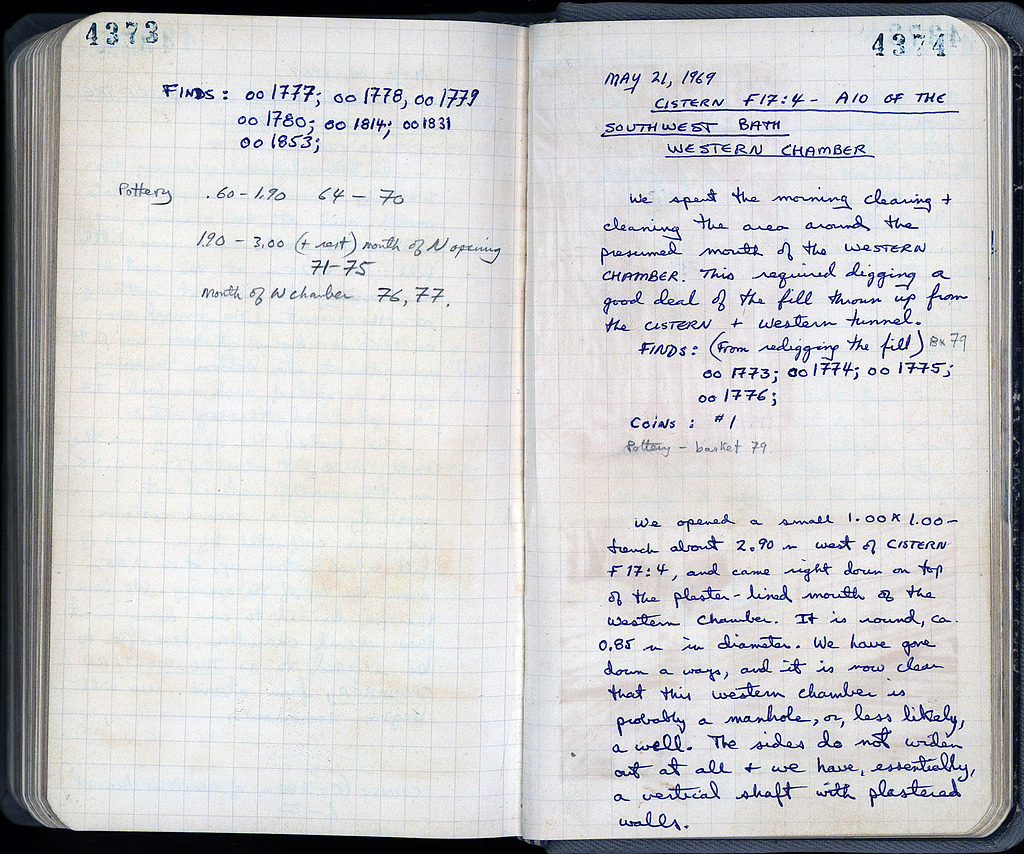 4373
FINDS: oo 1777; oo 1778, oo 1779
oo 1780; oo 1814; oo 1831
oo 1853;
Pottery .60-1.90 64 - 70
1.90 - 3.00 (+ rest) mouth of N opening
71-75
mouth of W chamber 76, 77.
4374
MAY 21, 1969
CISTERN F17:4 - A10 OF THE
SOUTHWEST BATH
WESTERN CHAMBER
We spent the morning clearing +
cleaning the area around the
presumed mouth of the WESTERN
CHAMBER. This required digging a
good deal of the fill thrown up from
the CISTERN + Western tunnel.
FINDS: (From redigging the fill) Bx 79
oo 1773; oo 1774; oo 1775;
oo 1776;
COINS: #1
Pottery - basket 79.
We opened a small 1.00 x 1.00-
trench about 2.90 m west of CISTERN
F17:4, and came right down on top
of the plaster-lined mouth of the
western chamber. It is round, ca.
0.85 m in diameter. We have gone
down a ways, and it is now clear
that this western chamber is
probably a manhole, or, less likely,
a well. The sides do not widen
out at all + we have, essentially,
a vertical shaft with plastered
walls.